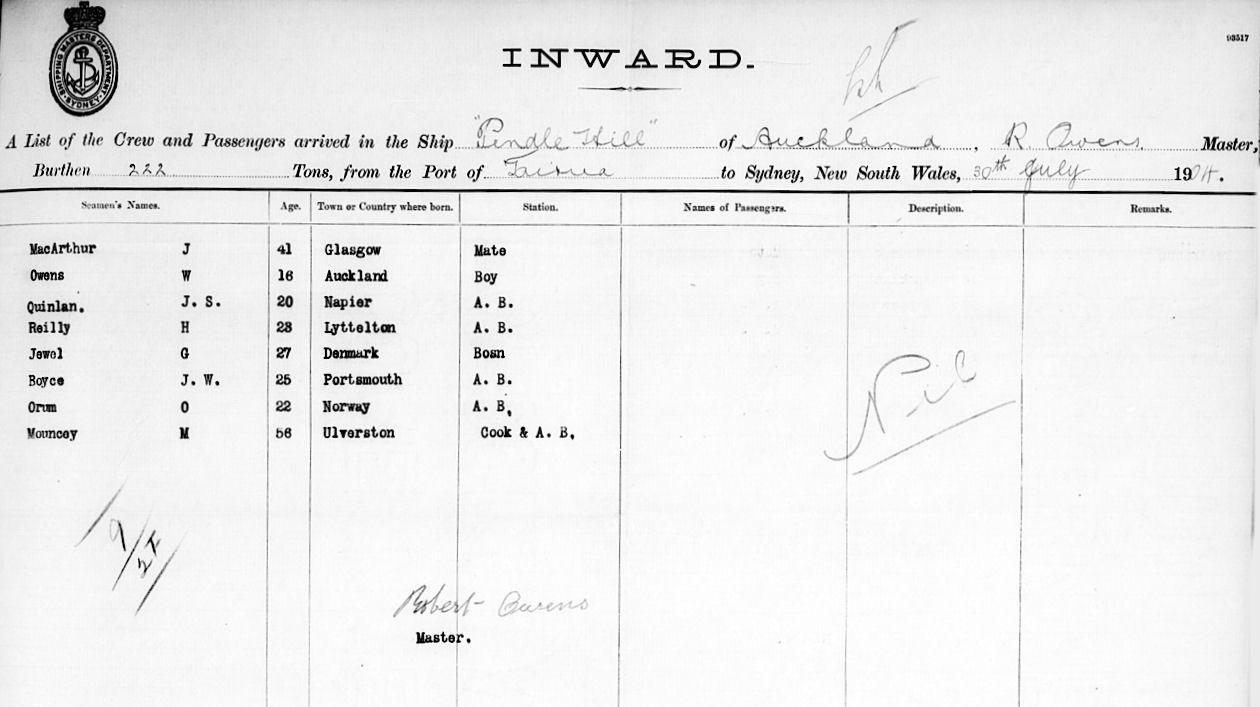 93517
SHIPPING MASTERS DEPARTMENT SYDNEY
INWARD.
A List of the Crew and Passengers arrived in the Ship "Pendle Hill" of Auckland, R. Owens. Master,
Burthen 222 Tons, from the Port of Tairua to Sydney, New South Wales, 30th July 19
Seamen's Names. Age. Town or Country where born. Station. Names of Passengers. Description. Remarks.
MacArthur J 41 Glasgow Mate
Owens W 16 Auckland Boy
Quinlan. J. S. 20 Napier A. B.
Reilly H 28 Lyttelton A. B.
Jewel G 27 Denmark Bosn
Boyce J. W. 25 Portsmouth A. B.
Orum O 22 Norway A. B,
Mouncey M 56 Ulverston Cook & A. B,
Nil
Robert Owens
Master.